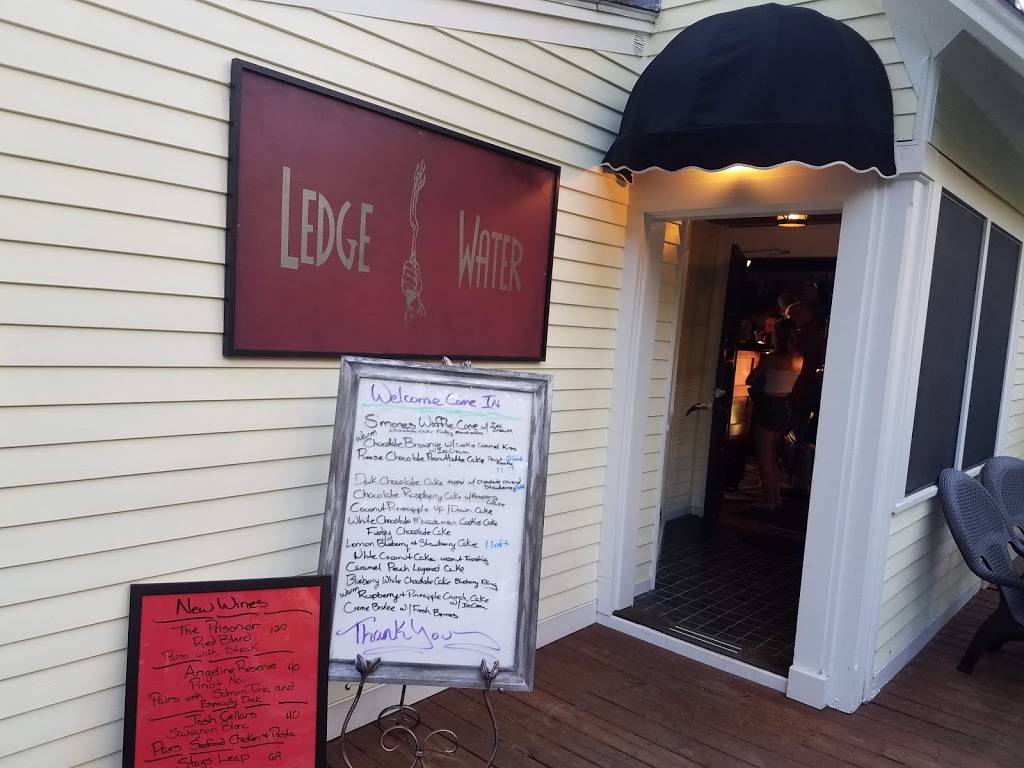 LEDGE WATER
Welcome Come In
S'mores Waffle Cone w/ Ice Cream
Warm Chocolate Brownie w/ Cookie Caramel
w/ Ice Cream
Reese Chocolate Peanutbutter Cake
Duck Chocolate Cake topped w/ chocolate covered Strawberry
Chocolate Raspberry Cake w/ Raspberry
Coconut Pineapple up/Down Cake
White Chocolate Cookie Cake
Fudgy Chocolate Cake
Lemon Blueberry & Strawberry Cake 1 left
White Coconut Cake coconut Frosting
Caramel Peach Layered Cake
Blueberry White Chocolate Cake Blueberry Filling
Warm Raspberry & Pineapple Crunch Cake
w/ Ice Cream
Creme Brulee w/ Fresh Berries
Thank You
New Wines
The Prisoner 120
Red Blend
Pairs with Steak
Angeline Reserve 40
Pinot Noir
Pairs with Salmon Tuna and
Especially Duck
Josh Cellars 40
Sauvignon Blanc
Pairs Seafood Chicken & Pasta
Stags Leap 69